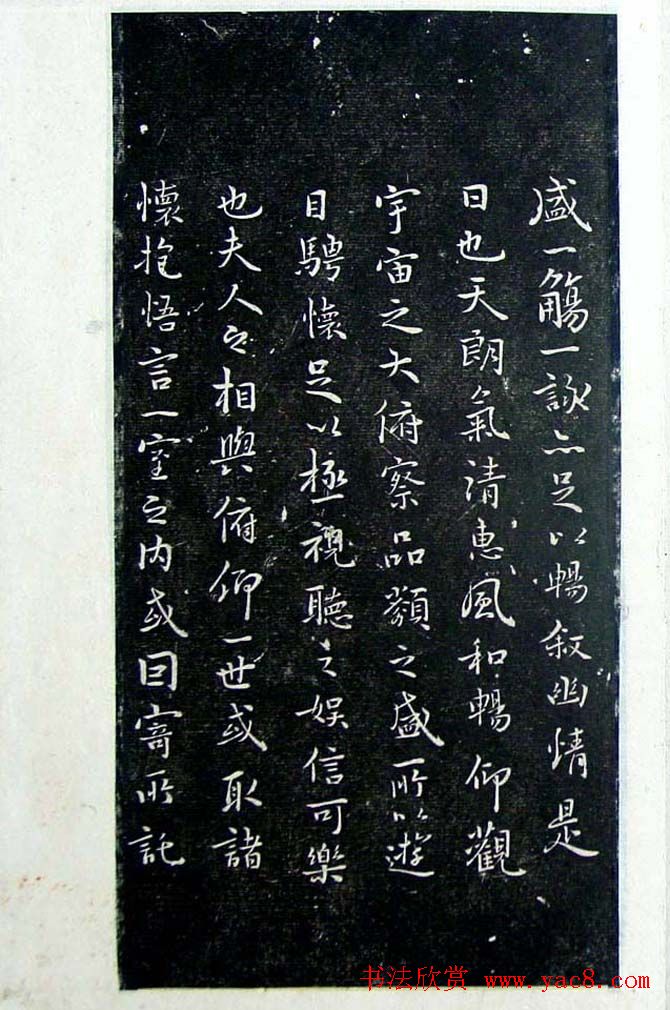 盛一觴一詠亦足以暢叙幽情是
日也天朗氣清惠風和暢仰觀
宇宙之大俯察品類之盛所以遊
目騁懷足以極視聽之娛信可樂
也夫人之相與俯仰一世或取諸
懷抱悟言一室之内或因寄所託
书法欣赏 www.yac8.com